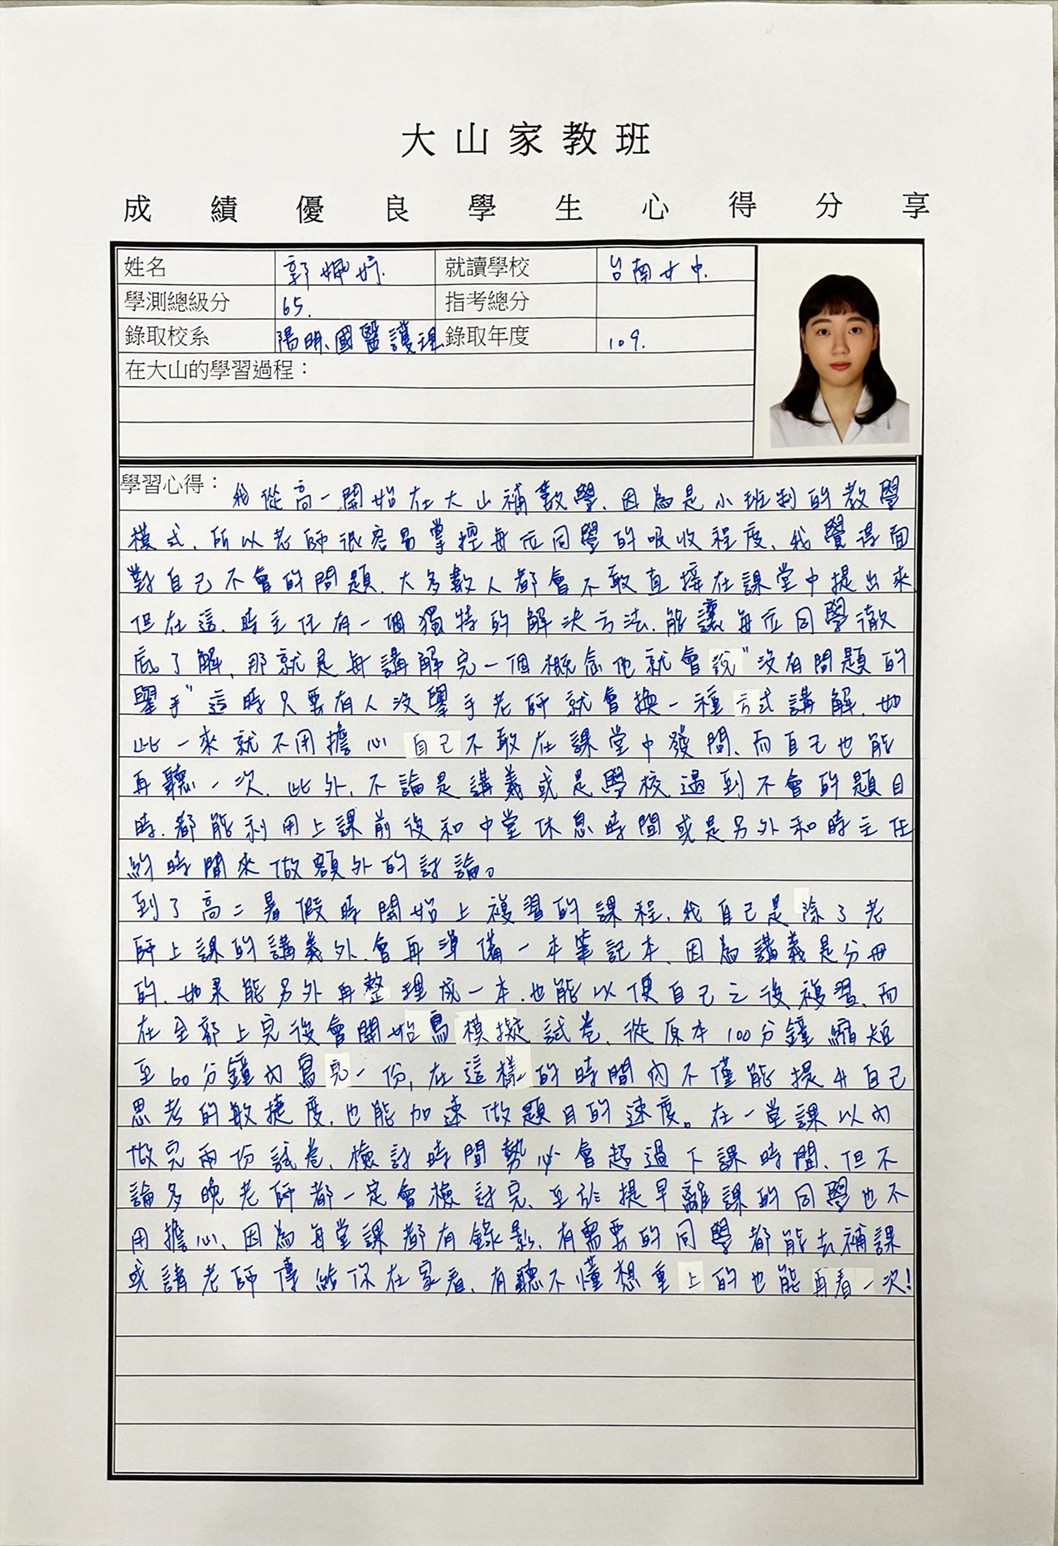 大山家教班
成績優良學生心得分享
姓名 郭 就讀學校 台南女中.
學測總級分 65. 指考總分
錄取校系 陽明、國醫護理 錄取年度 109.
在大山的學習過程：
學習心得： 我從高一開始在大山補數學、因為是小班制的教學
模式、所以老師很容易掌控每位同學的吸收程度、我覺得面
對自己不會的問題、大多數人都會不敢直接在課堂中提出來
但在這、時主任有一個獨特的解決方法、能讓每位同學徹
底了解、那就是每講解完一個概念他就會說"沒有問題的
舉手"這時只要有人沒舉手老師就會換一種方式講解、如
此一來就不用擔心自己不敢在課堂中發問、而自己也能
再聽一次、此外、不論是講義或是學校遇到不會的題目
時、都能利用上課前後和中堂休息時間或是另外和時主任
約時間來做額外的討論。
到了高二暑假時開始上複習的課程、我自己是除了老
師上課的講義外、會再準備一本筆記本、因為講義是分冊
的、如果能另外再整理成一本、也能以便自己之後複習、而
在全部上完後會開始寫模擬試卷、從原本100分鐘縮短
至60分鐘內寫完一份、在這樣的時間內不僅能提升自己
思考的敏捷度、也能加速做題目的速度。在一堂課以內
做完兩份試卷、檢討時間勢必會超過下課時間、但不
論多晚老師都一定會檢討完、至於提早離課的同學也不
用擔心、因為每堂課都有錄影、有需要的同學都能去補課
或請老師傳給你在家看、有聽不懂想重上的也能再看一次!